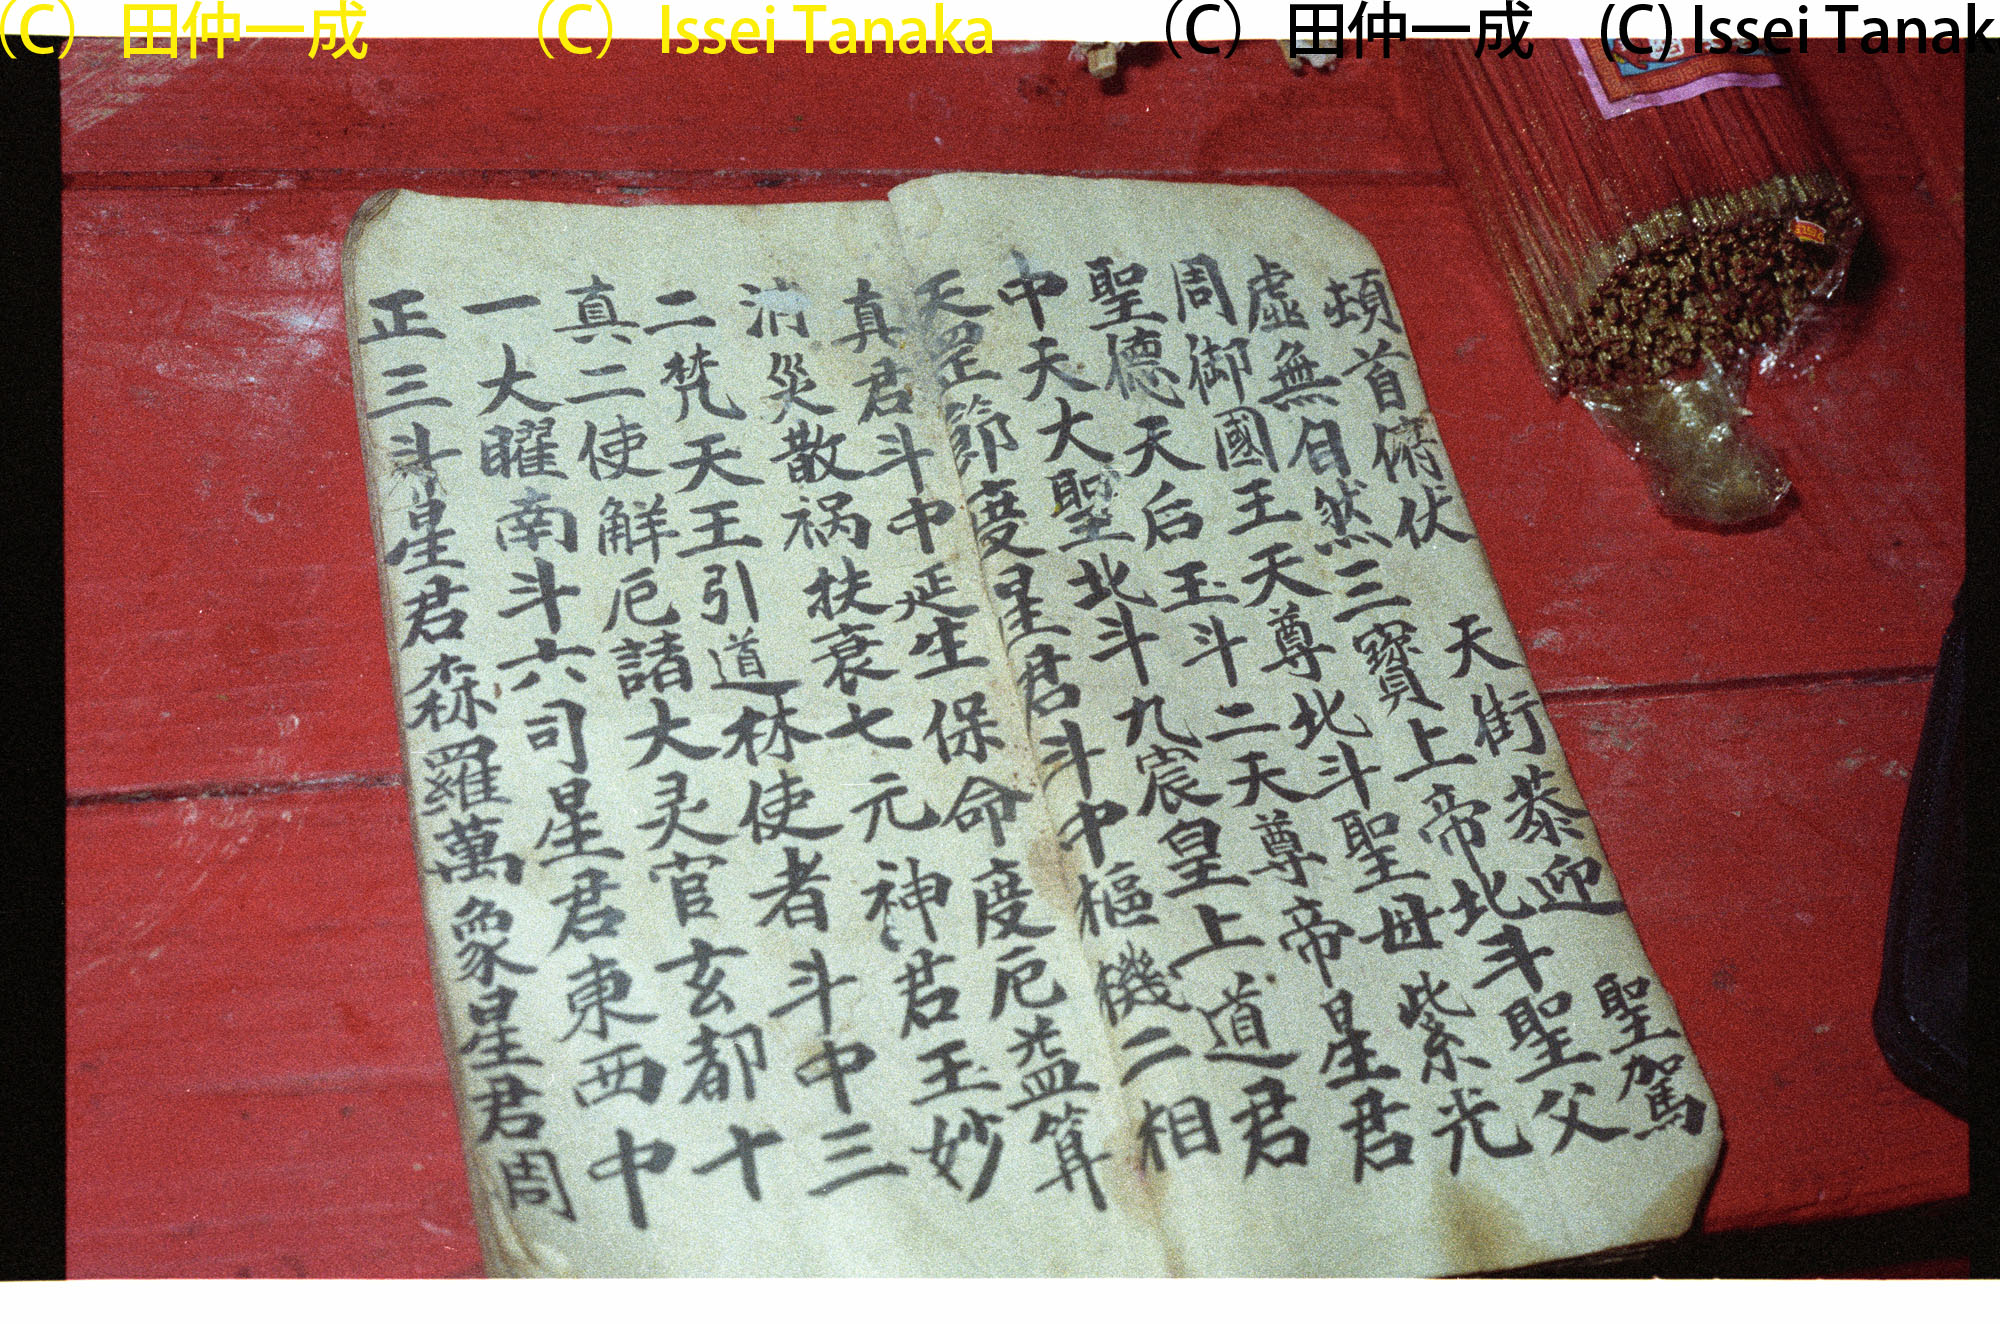 (C) 田仲一成 (C) Issei Tanaka (C) 田仲一成 (C) Issei Tanak
頓首俯伏 天街恭迎 聖駕
虛無自然三寶上帝北斗聖父
周御國王天尊北斗聖母紫光
聖德天后玉斗二天尊帝星君
中天大聖北斗九宸皇上道君
天罡節度星君斗中樞機二相
真君斗中延生保命度厄益算
消災散祸扶衰七元神君玉妙
二梵天王引道林使者斗中三
真二使解厄諸大灵官玄都十
一大曜南斗六司星君東西中
正三斗星君森羅萬象星君周